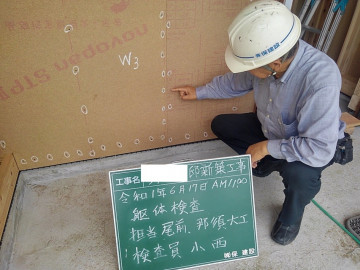 novopan STPⅡ
W3
永保建設
工事名 邸新築工事
令和1年6月17日 AM11:00
躯体検査
担当 尾前、那須大工
検査員 小西
㈱永保 建設